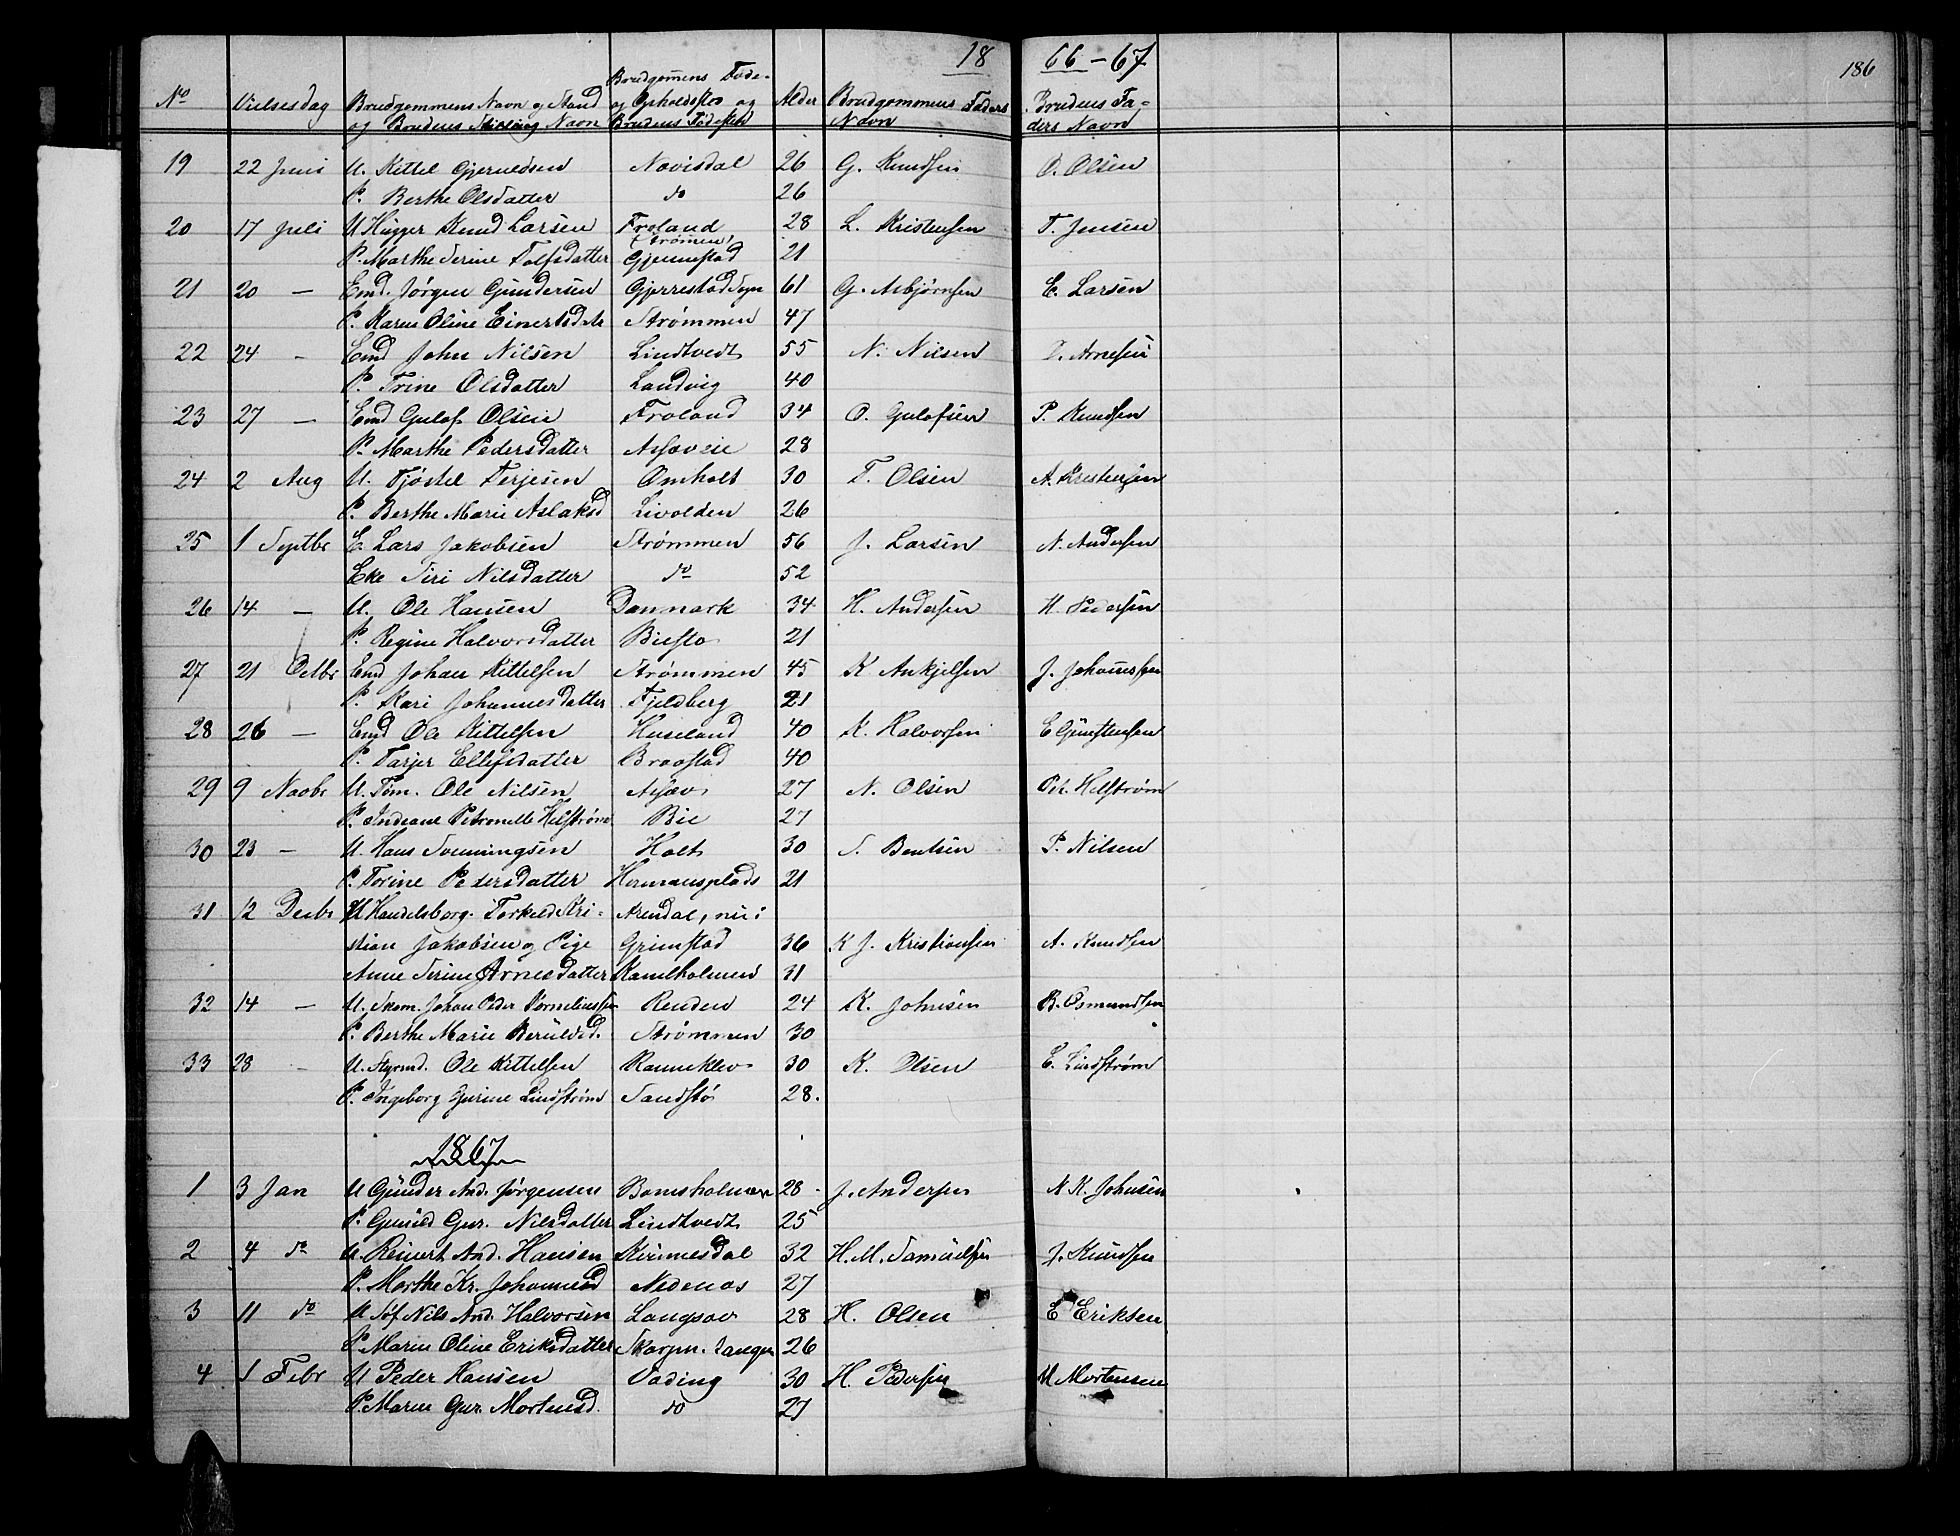 18 66-67
186
No Vielsesdag Brudgommens Navn og Stand Brudgomens Føde- Alder Brudgommens Faders Brudens Fa-
og Opholdssted og Navn ders Navn
og Brudens Navn Brudens Fødested
19 22 Juni U. Kittel Gjeruldsen Novisdal 26 G. Knudsen O. Olsen
P. Berthe Olsdatter do 26
20 17 Juli U Hugger Knud Larsen Froland 28 L. Kristensen T. Jensen
(Strømen)
P. Marthe Serine Tolfsdatter 21
21 20 — Emd. Jørgen Gundersen Gjerrestad Sogn 61 G. Asbjørnsen E. Larsen
P. Karen Oline Einertsdtr Strømmen 47
22 24 - Emd John Nilsen Lindtvedt 55 N. Nilsen Arnesen
P. Trine Olsdatter Landvig 40
23 27 — Emd Gulof Olsen Froland 34 O. Gulofsen P. Knudsen
P. Marthe Pedersdatter 28
24 2 Aug U. Tjøstel Terjesen Omholt 30 T. Olsen A. Kristensen
P. Berthe Marie Aslaksd Livolden 26
25 1 Septbr E. Lars Jakobsen Strømmen 56 J. Larsen N. Andersen
Eke Siri Nilsdatter do 52
26 14 — U. Ole Hansen Danmark 34 H. Andersen H. Pedersen
P. Regine Halvorsdatter 21
27 21 Octbr Emd Johan Kittelsen Strømmen 45 K Ankjelsen J. Johannessen
P. Kari Johannesdatter Fjeldberg 21
28 26 — Emd Ole Kittelsen Huseland 40 K. Halvorsen E Gunstensen
P. Tarjer Ellefsdatter Braastad 40
29 9 Novbr U. Tøm. Ole Nilsen 27 N. Olsen Pet. Helstrøm
P. Indiane Petronelle Helstrøm Bie 27
30 23 — U. Hans Svenningsen Holt 30 S. Bentsen P. Nilsen
P. Torine Pedersdatter Hermansplads 21
31 12 Decbr U Handelsborg. Torkild Kri- Arendal, nu i
stian Jakobsen og Pige Grimstad 36 K J. Kristiansen A. Knudsen
Anne Serine Arnesdatter Kamlholmen 31
32 14 — U. Skom. Johan Peder Korneliussen Renden 24 K. Johnsen B. Osmundsen
P. Berthe Marie Berulvsd. Strømmen 30
33 28 - U. Styrmd. Ole Kittelsen Ranneklev 30 K. Olsen E. Lindstrøm
P. Ingeborg Gurine Lindstrøm Sandstø 28.
1867
1 3 Jan U Gunder And. Jørgensen Bomsholmen 28 J. Andersen N. K. Johnsen
P. Gunild Gur. Nilsdatter Lindtvedt 25
2 4 do U. Reinert And. Hansen Kirunesdal 32 H. M. Samuelsen J. Knudsen
P. Marthe Kr. Johannesd Nedenæs 27
3 11 do U Søf Nils And. Halvorsen Langsæv 28 H. Olsen E Eriksen
P. Maren Oline Eriksdatter 26
4 1 Febr U Peder Hansen Vading 30 H. Pedersen M Mortensen
P. Maren Gur. Mortensd. do 27